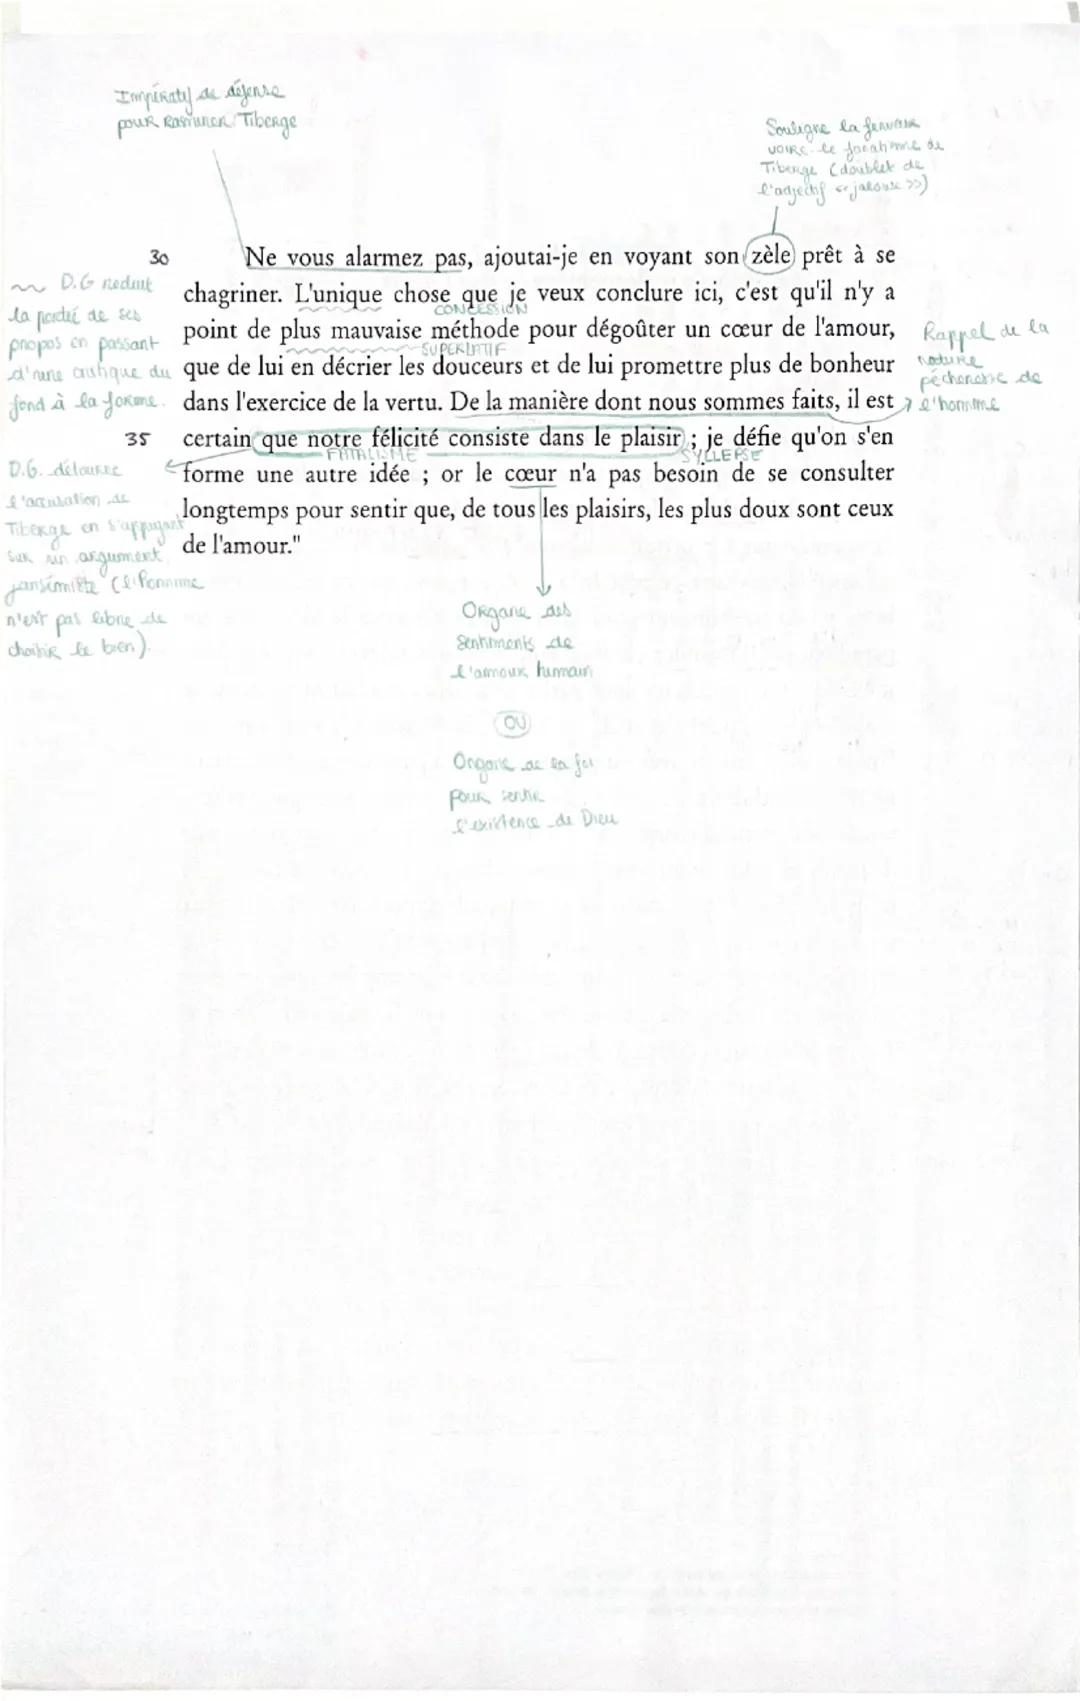 Impératif de défense
pour rassurer Tiberge
Souligne la ferveur
voire le fanatisme de
Tiberge (doublet de
l'adjectif « jalouse »)
30
Ne vous alarmez pas, ajoutai-je en voyant son zèle prêt à se
chagriner. L'unique chose que je veux conclure ici, c'est qu'il n'y a
CONCESSION
point de plus mauvaise méthode pour dégoûter un cœur de l'amour,
SUPERLATIF
que de lui en décrier les douceurs et de lui promettre plus de bonheur
dans l'exercice de la vertu. De la manière dont nous sommes faits, il est
35
certain que notre félicité consiste dans le plaisir ; je défie qu'on s'en
FATALISME
SYLLEPSE
forme une autre idée ; or le cœur n'a pas besoin de se consulter
longtemps pour sentir que, de tous les plaisirs, les plus doux sont ceux
de l'amour."
D.G réduit
la portée de ses
propos en passant
d'une critique du
fond à la forme.
D.G. détourne
l'accusation de
Tiberge en s'appuyant
sur un argument
janséniste (l'homme
n'est pas libre de
choisir le bien).
Rappel de la
nature
pécheresse de
l'homme
Organe des
sentiments de
l'amour humain
OU
Organe de la foi
pour sentir
l'existence de Dieu